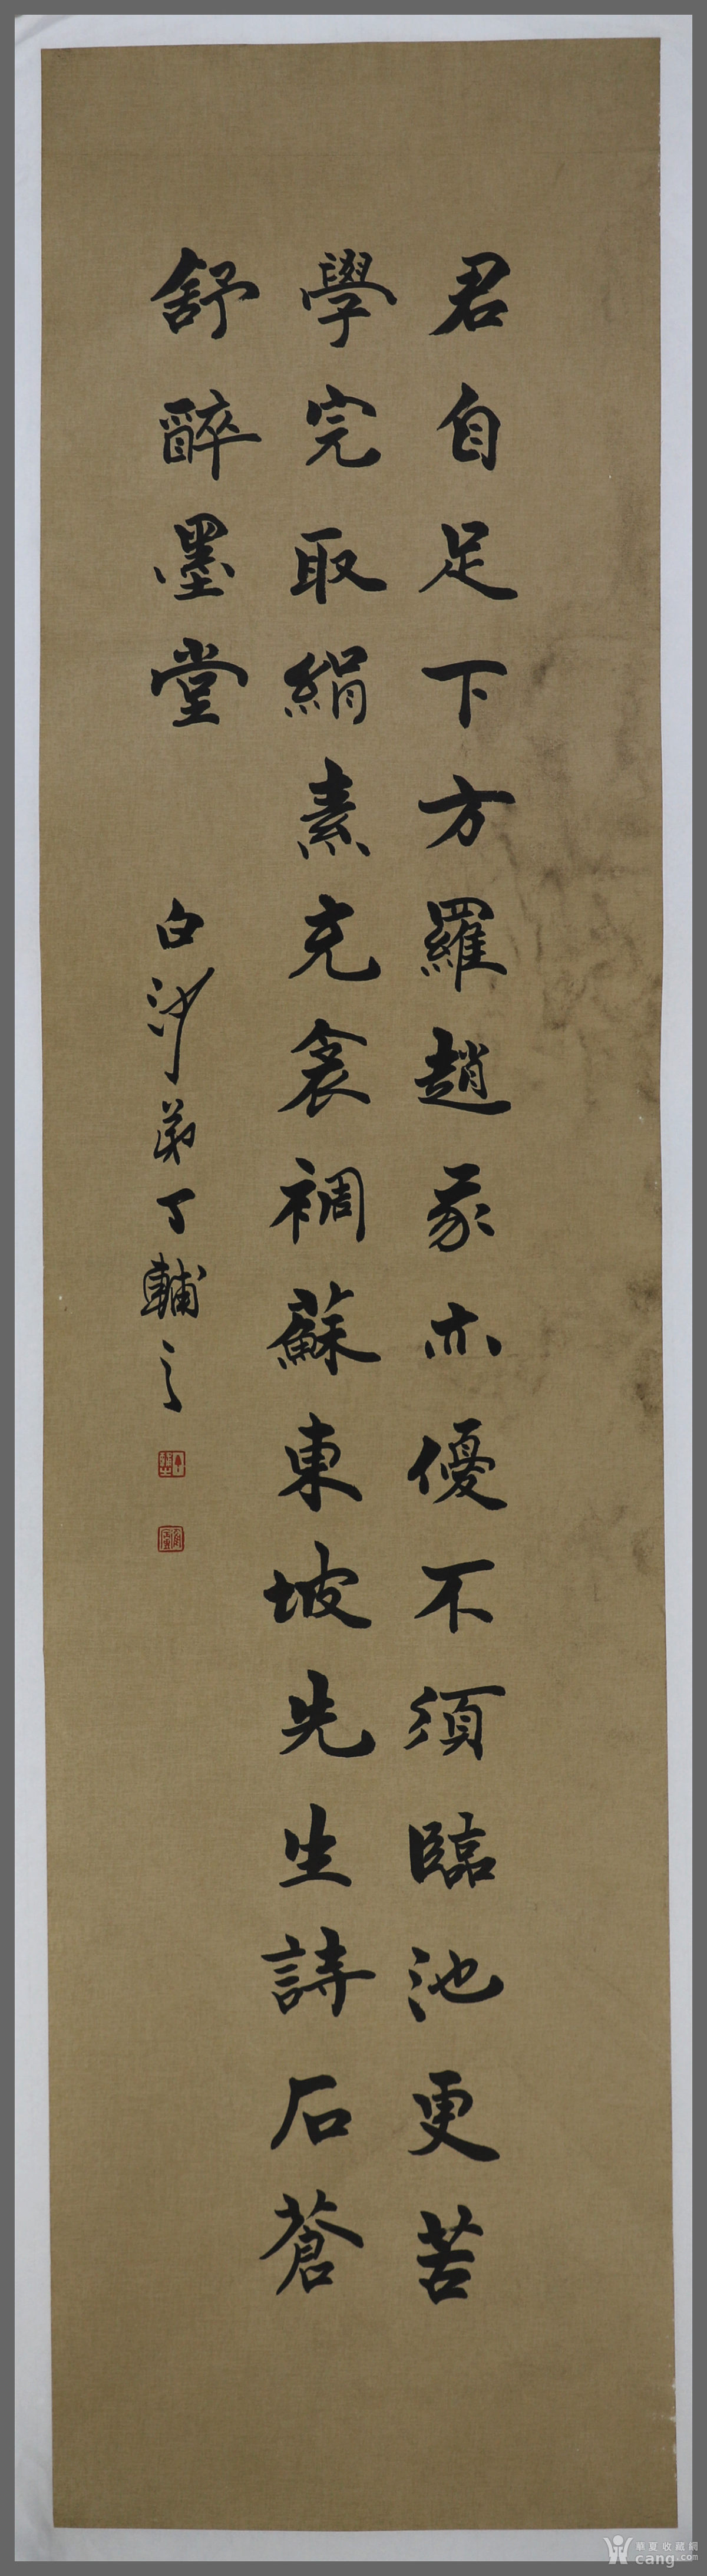 君自足下方羅趙我亦優不須臨池更苦
學完取絹素充衾裯蘇東坡先生詩石蒼
舒醉墨堂
白沙弟丁輔之
華夏收藏網
cang.com